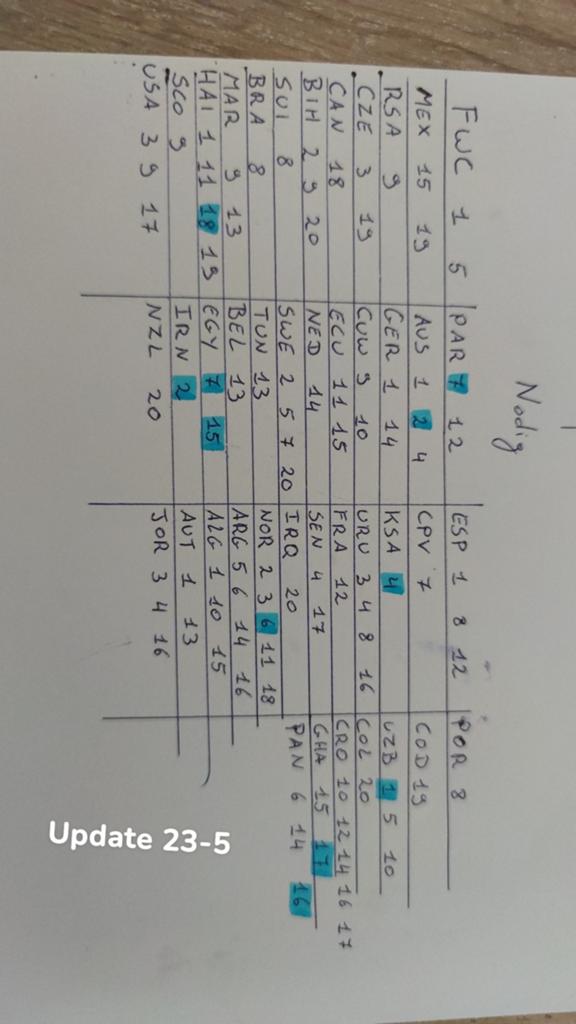 Nodig
FWC 1 5 PAR 7 12 ESP 1 8 12 POR 8
MEX 15 19 AUS 1 2 4 CPV 7 COD 19
RSA 9 GER 1 14 KSA 4 UZB 1 5 10
CZE 3 19 CUW 9 10 URU 3 4 8 16 COL 20
CAN 18 ECU 11 15 FRA 12 CRO 10 12 14 16 17
BIH 2 9 20 NED 14 SEN 4 17 GHA 15 17
SUI 8 SWE 2 5 7 20 IRQ 20 PAN 6 14 16
BRA 8 TUN 13 NOR 2 3 6 11 18
MAR 9 13 BEL 13 ARG 5 6 14 16
HAI 1 11 18 19 EGY 7 15 ALG 1 10 15
SCO 9 IRN 2 AUT 1 13
USA 3 9 17 NZL 20 JOR 3 4 16
Update 23-5